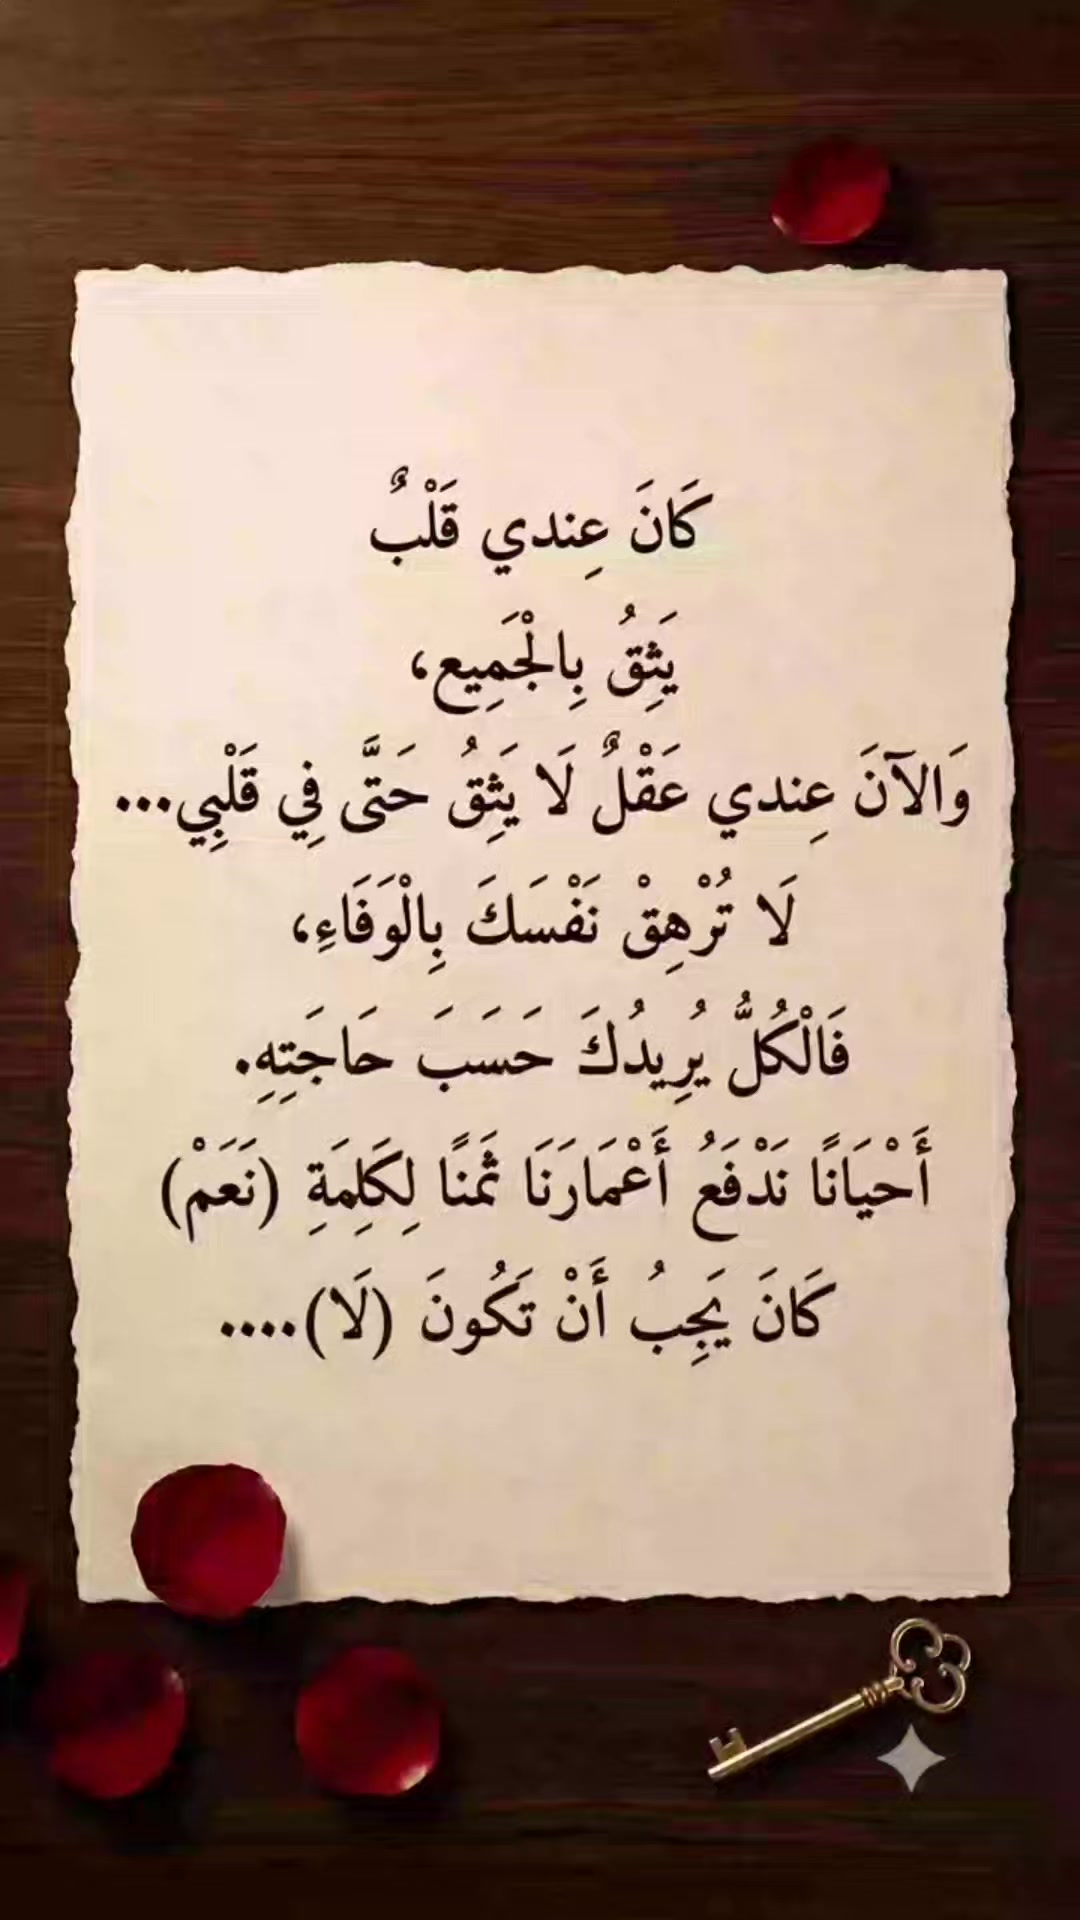 كَانَ عِندي قَلْبٌ
يَثِقُ بِالْجَمِيع،
وَالآنَ عِندي عَقْلٌ لَا يَثِقُ حَتَّى فِي قَلْبِي...
لَا تُرْهِقْ نَفْسَكَ بِالْوَفَاءِ،
فَالْكُلُّ يُرِيدُكَ حَسَبَ حَاجَتِهِ.
أَحْيَانًا نَدْفَعُ أَعْمَارَنَا ثَمَنًا لِكَلِمَةِ (نَعَمْ)
كَانَ يَجِبُ أَنْ تَكُونَ (لَا)....